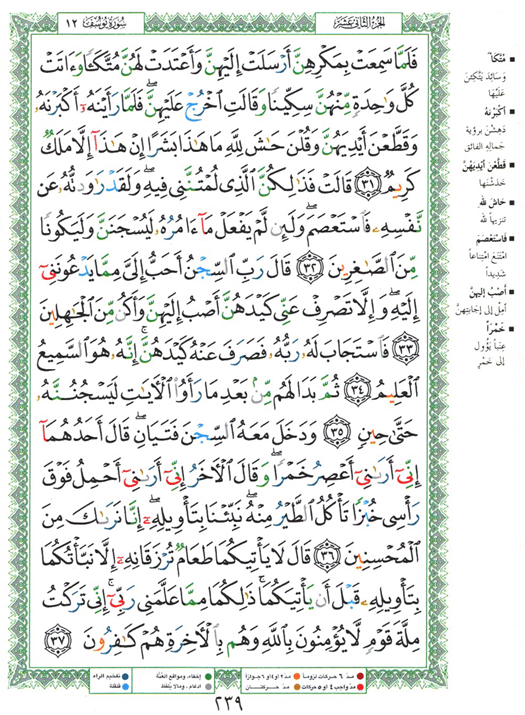 الجزء الثاني عشر
سورة يوسف ١٢
فَلَمَّا سَمِعَتْ بِمَكْرِهِنَّ أَرْسَلَتْ إِلَيْهِنَّ وَأَعْتَدَتْ لَهُنَّ مُتَّكَـًٔا وَءَاتَتْ
كُلَّ وَٰحِدَةٍ مِّنْهُنَّ سِكِّينًا وَقَالَتِ ٱخْرُجْ عَلَيْهِنَّ ۖ فَلَمَّا رَأَيْنَهُۥٓ أَكْبَرْنَهُۥ
وَقَطَّعْنَ أَيْدِيَهُنَّ وَقُلْنَ حَٰشَ لِلَّهِ مَا هَٰذَا بَشَرًا إِنْ هَٰذَآ إِلَّا مَلَكٌ
كَرِيمٌ ٣١ قَالَتْ فَذَٰلِكُنَّ ٱلَّذِى لُمْتُنَّنِى فِيهِ ۖ وَلَقَدْ رَٰوَدتُّهُۥ عَن
نَّفْسِهِۦ فَٱسْتَعْصَمَ ۖ وَلَئِن لَّمْ يَفْعَلْ مَآ ءَامُرُهُۥ لَيُسْجَنَنَّ وَلَيَكُونًا
مِّنَ ٱلصَّٰغِرِينَ ٣٢ قَالَ رَبِّ ٱلسِّجْنُ أَحَبُّ إِلَىَّ مِمَّا يَدْعُونَنِىٓ
إِلَيْهِ ۖ وَإِلَّا تَصْرِفْ عَنِّى كَيْدَهُنَّ أَصْبُ إِلَيْهِنَّ وَأَكُن مِّنَ ٱلْجَٰهِلِينَ
٣٣ فَٱسْتَجَابَ لَهُۥ رَبُّهُۥ فَصَرَفَ عَنْهُ كَيْدَهُنَّ ۚ إِنَّهُۥ هُوَ ٱلسَّمِيعُ
ٱلْعَلِيمُ ٣٤ ثُمَّ بَدَا لَهُم مِّنۢ بَعْدِ مَا رَأَوُا۟ ٱلْـَٔايَٰتِ لَيَسْجُنُنَّهُۥ
حَتَّىٰ حِينٍ ٣٥ وَدَخَلَ مَعَهُ ٱلسِّجْنَ فَتَيَانِ ۖ قَالَ أَحَدُهُمَآ
إِنِّىٓ أَرَىٰنِىٓ أَعْصِرُ خَمْرًا ۖ وَقَالَ ٱلْـَٔاخَرُ إِنِّىٓ أَرَىٰنِىٓ أَحْمِلُ فَوْقَ
رَأْسِى خُبْزًا تَأْكُلُ ٱلطَّيْرُ مِنْهُ ۖ نَبِّئْنَا بِتَأْوِيلِهِۦٓ ۖ إِنَّا نَرَىٰكَ مِنَ
ٱلْمُحْسِنِينَ ٣٦ قَالَ لَا يَأْتِيكُمَا طَعَامٌ تُرْزَقَانِهِۦٓ إِلَّا نَبَّأْتُكُمَا
بِتَأْوِيلِهِۦ قَبْلَ أَن يَأْتِيَكُمَا ۚ ذَٰلِكُمَا مِمَّا عَلَّمَنِى رَبِّىٓ ۚ إِنِّى تَرَكْتُ
مِلَّةَ قَوْمٍ لَّا يُؤْمِنُونَ بِٱللَّهِ وَهُم بِٱلْـَٔاخِرَةِ هُمْ كَٰفِرُونَ ٣٧
مُتَّكَأً
وَسَائِدَ يَتَّكِئْنَ
عَلَيْهَا
أَكْبَرْنَهُ
دَهِشْنَ بِرُؤْيَةِ
جَمَالِهِ الفائق
قَطَّعْنَ أَيْدِيَهُنَّ
خَدَشْنَها
حَاشَ لله
تنزيهاً لله
فَاسْتَعْصَمَ
امْتَنَعَ امْتِنَاعاً
شَدِيداً
أَصْبُ إليهنَّ
أَمِلْ إلى إجابتهنَّ
خَمْراً
عِنَباً يَؤُول
إلى خَمْر
مدّ ٦ حركات لزوماً
مدّ ٢ أو ٤ أو ٦ جوازاً
إخفاء، ومواقع الغُنَّة
تفخيم الراء
مدّ واجب ٤ أو ٥ حركات
مدّ حركتان
إدغام ، وما لا يُلفَظ
قلقلة
٢٣٩